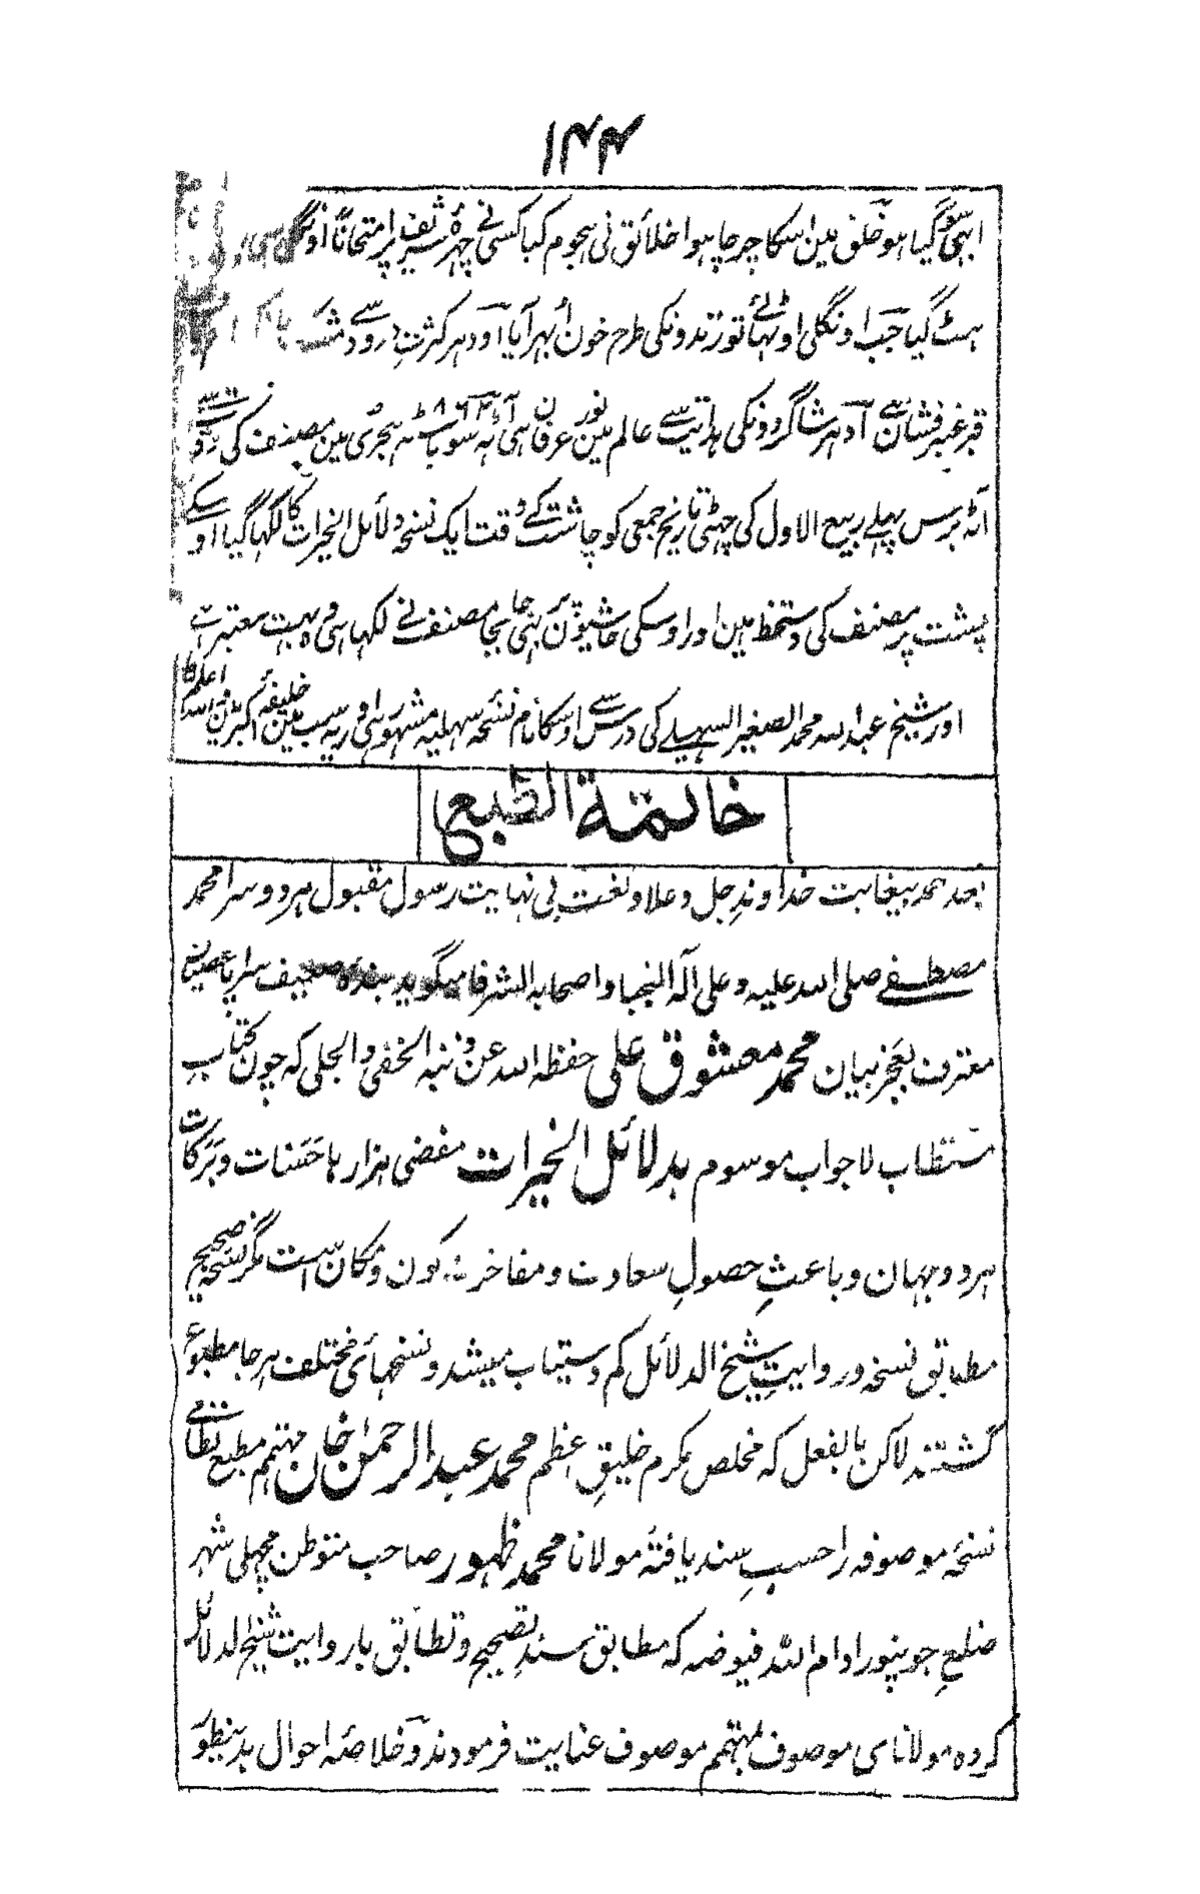 ۱۴۴
ابھی گیا ہو خلق مین اسکا چرچا ہوا خلائق نی ہجوم کیا کسی نے چہرۂ شریف پر امتحاناً اونگلی
ہٹ گیا جب اونگلی اوٹھائے تو زندونکی طرح خون اُبھر آیا اودہر کثرتِ درود سے
قبر عنبر فشان ہے اودہر شاگردونکی ہدایت سے عالم مین نور عرفان ہی آٹھ سو باسٹھ ۸۶۲ ہجری مین مصنف کی
آٹھ برس پہلے ربیع الاول کی چھٹی تاریخ جمعی کو چاشت کے وقت ایک نسخہ دلائل الخیرات کا لکھا گیا اوسکے
پشت پر مصنف کی دستخط ہین اور اوسکی حاشیون پر بھی جابجا مصنف نے لکھا ہی وہ بہت معتبر ہے
اور شیخ عبد اللہ محمد الصغیر السہیلے کی درس سے اوسکا نام نسخہ سہلیہ مشہور ہی اور یہ سب مین خلیفۂ اکبر ہین واللہ اعلم
خاتمة الطبع
بعد حمد بیغایت خداوندِ جل وعلا و نعت بی نہایت رسول مقبول ہر دو سرا محمد
مصطفے صلی اللہ علیہ وعلی آلہ النجبا واصحابہ الشرفا میگوید بندۂ ضعیف سراپا عصیان
معترف بعجز بیان محمد معشوق علی حفظہ اللہ عن ذنبہ الخفی والجلی کہ چون کتابِ
مستطاب لاجواب موسوم بدلائل الخیرات مفضی ہزارہا حسنات وبرکات
ہر دو جہان و باعثِ حصولِ سعادت و مفاخرتِ کون و مکان است مگر نسخہ صحیح
مطابق نسخہ و روایتِ شیخ الدلائل کم دستیاب میشد و نسخہای مختلف ہر جا مطبوع
گشتند لاکن بالفعل کہ مخلص مکرم خلیقِ اعظم محمد عبد الرحمن خان مہتمم مطبع نظامے
نسخۂ موصوفہ را حسبِ سند یافتۂ مولانا محمد ظہور صاحب متوطن مچھلی شہر
ضلع جونپور ادام اللہ فیوضہ کہ مطابق سندِ تصحیح و تطابق با روایت شیخ الدلائل
کردہ مولانای موصوف بمہتمم موصوف عنایت فرمودند و خلاصۂ احوال بدینطور